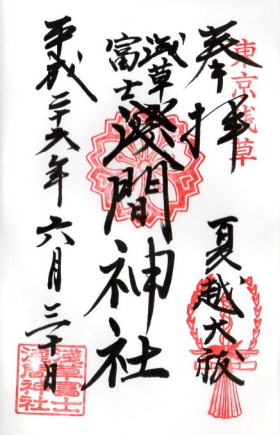 東京浅草
奉拝
夏越大祓
浅草
富士
浅間神社
平成二十六年六月三十日
淺草富士
浅間神社